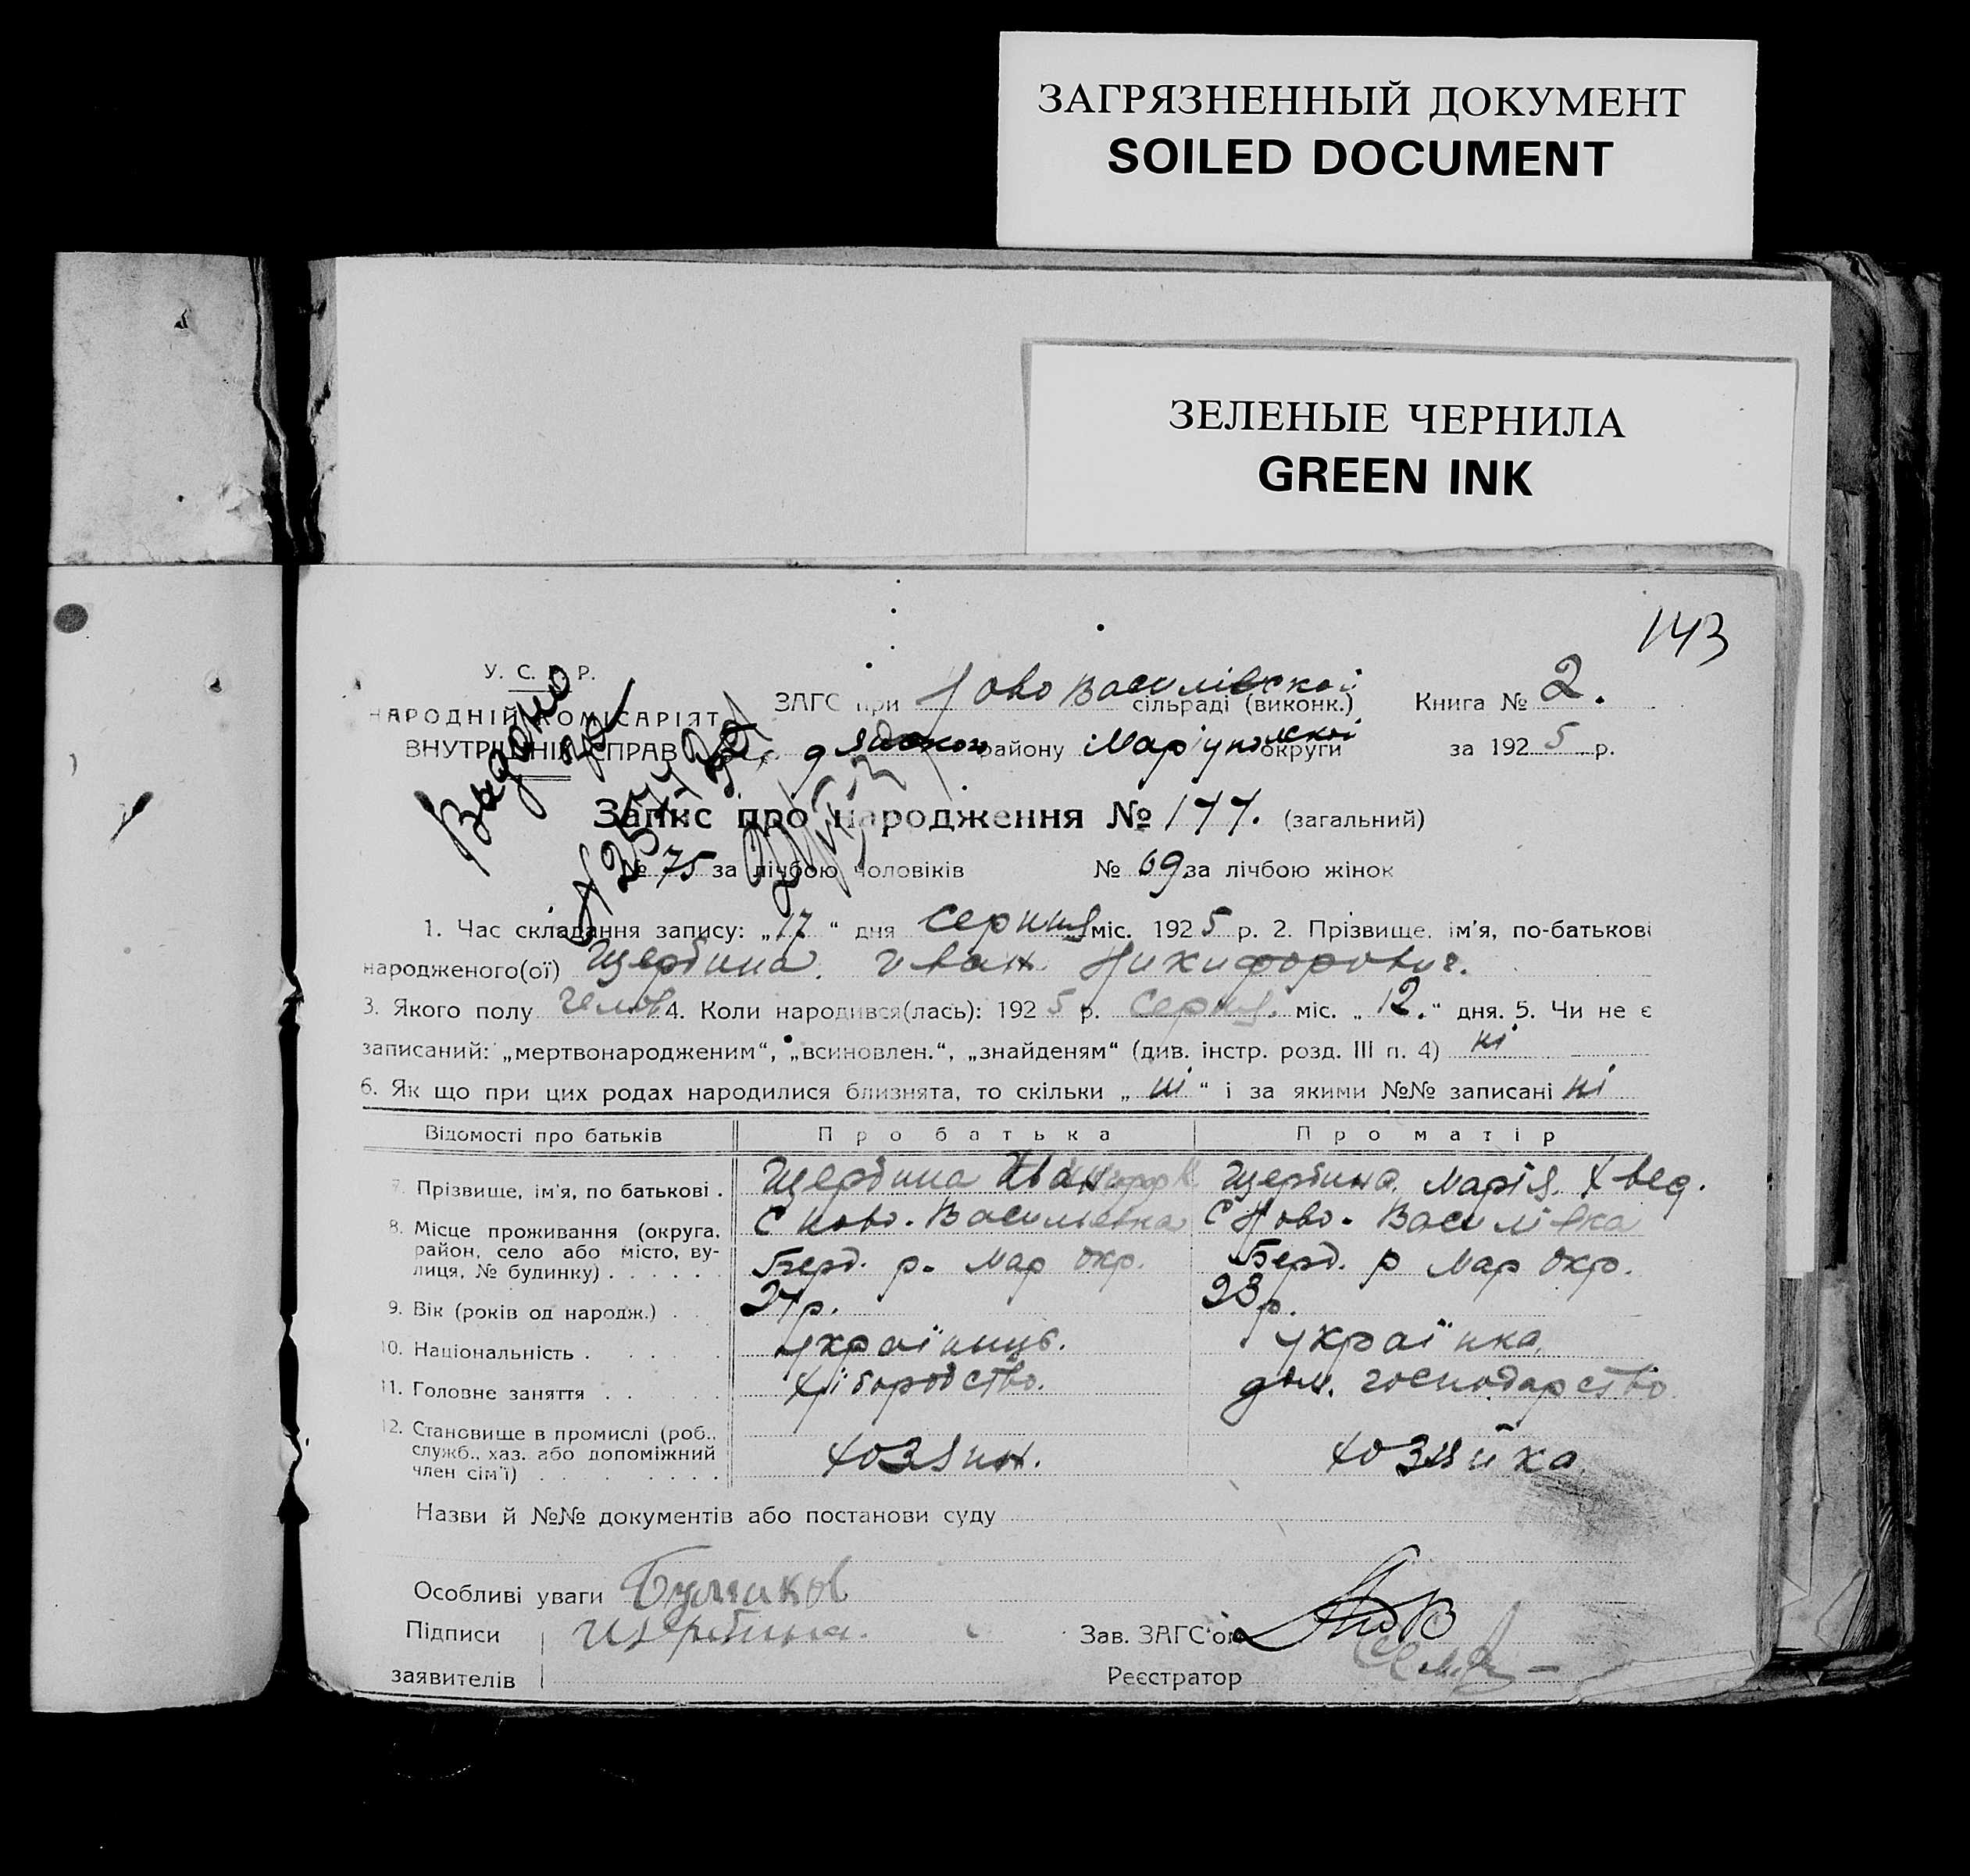 ЗАГРЯЗНЕННЫЙ ДОКУМЕНТ
SOILED DOCUMENT
ЗЕЛЕНЫЕ ЧЕРНИЛА
GREEN INK
143
У. С. Р. Р.
НАРОДНІЙ КОМІСАРІЯТ
ВНУТРІШНІХ СПРАВ
ЗАГС при Ново Василівской сільраді (виконк.)
району Маріупольской округи
Книга № 2.
за 1925 р.
Видано
Запис про народження № 177. (загальний)
№ 75 за лічбою чоловіків № 69 за лічбою жінок
1. Час складання запису: „17“ дня серпня міс. 1925 р. 2. Прізвище, ім'я, по-батькові
народженого(ої) Щербина Иван Никифорович.
3. Якого полу челов 4. Коли народився(лась): 1925 р. серпня міс. „12.“ дня. 5. Чи не є
записаний: „мертвонародженим“, „всиновлен.“, „знайденям“ (див. інстр. розд. III п. 4) ні
6. Як що при цих родах народилися близнята, то скільки „ні“ і за якими №№ записані ні
Відомості про батьків Про батька Про матір
7. Прізвище, ім'я, по батькові . Щербина Щербина Марія Хвед.
8. Місце проживання (округа, район, село або місто, вулиця, № будинку) . . . . . . С Ново-Василівка С Ново-Василівка
Берд. р. Мар окр. Берд. р Мар окр.
9. Вік (років од народж.) . . 27 р. 23 р.
10. Національність . . . . . українець. українка
11. Головне заняття . . . . хліборобство. дом. господарство
12. Становище в промислі (роб., служб., хаз. або допоміжний член сім'ї) . . . . . . . хозяин. хозяйка
Назви й №№ документів або постанови суду
Особливі уваги
Підписи Щербина.
заявителів
Зав. ЗАГС'ом
Реєстратор